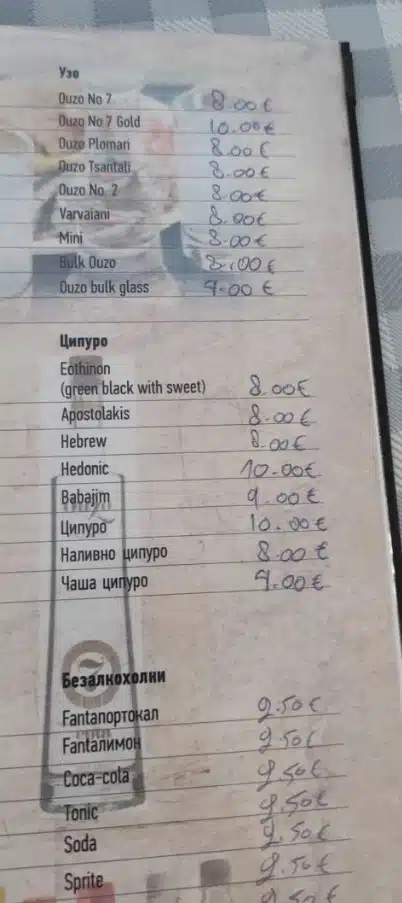 Узо
Ouzo No 7 8.00 €
Ouzo No 7 Gold 10.00€
Ouzo Plomari 8.00 €
Ouzo Tsantali 8.00€
Ouzo No. 2 8.00€
Varvaiani 8.00€
Mini 8.00€
Bulk Ouzo 8.00 €
Ouzo bulk glass 4.00 €
Ципуро
Eothinon
(green black with sweet) 8.00€
Apostolakis 8.00 €
Hebrew 8.00€
Hedonic 10.00€
Babajim 9.00€
Ципуро 10.00€
Наливно ципуро 8.00 €
Чаша ципуро 4.00€
Безалкохолни
Fantaпортокал 2.50€
Fantaлимон 2.50€
Coca-cola 2.50€
Tonic 2.50€
Soda 2.50€
Sprite 2.50€
2.50€